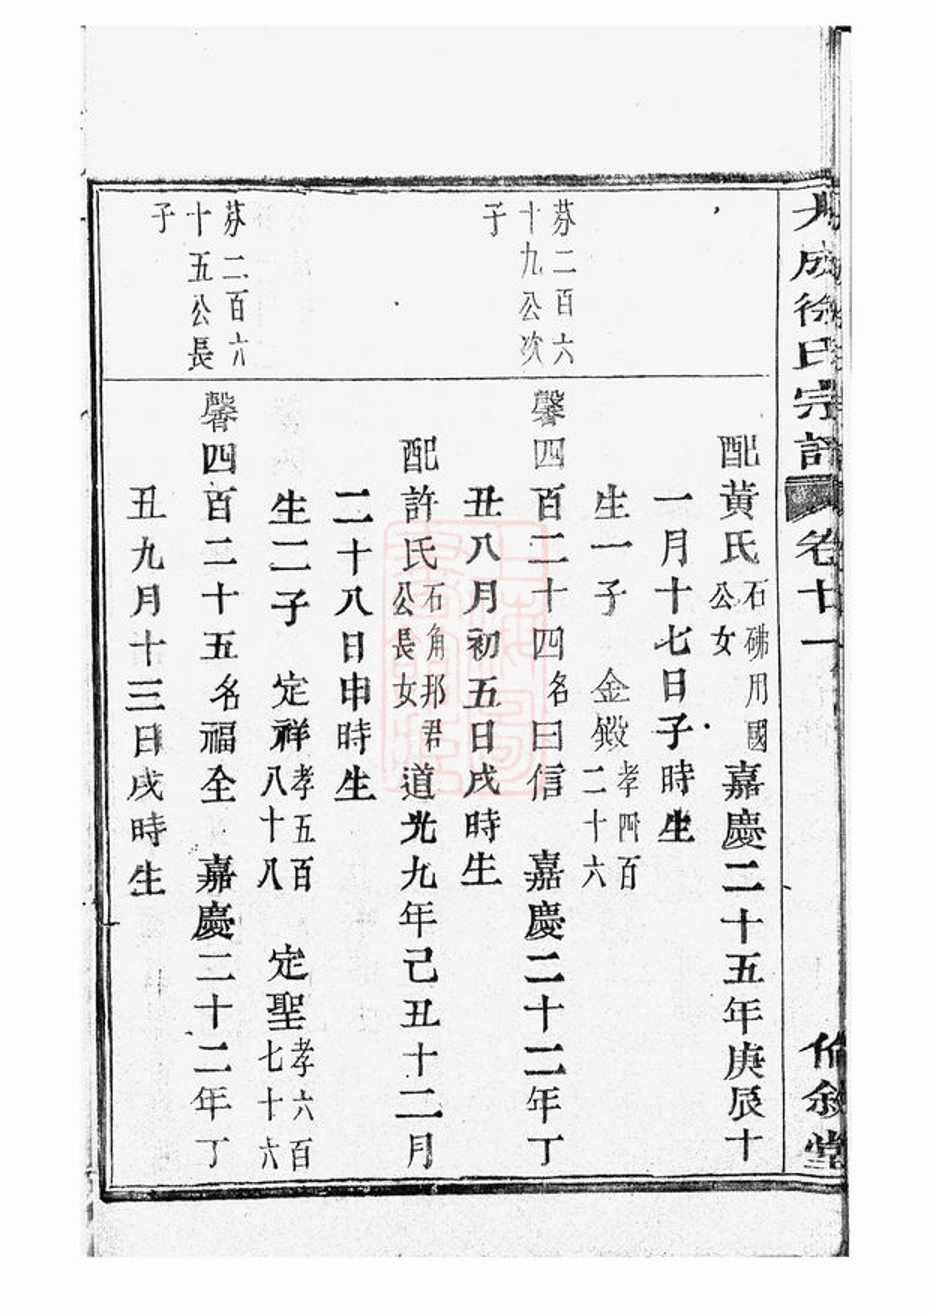 成徐氏宗譜 卷十一 敘堂
配黃氏石砩用國公女嘉慶二十五年庚辰十
一月十七日子時生
生一子 金鍛孝四百二十六
芬二百六十九公次子
馨四百二十四名曰信 嘉慶二十二年丁
丑八月初五日戌時生
配許氏石角邦君公長女道光九年己丑十二月
二十八日申時生
生二子 定祥孝五百八十八 定聖孝六百七十六
芬二百六十五公長子
馨四百二十五名福全 嘉慶二十二年丁
丑九月十三日戌時生